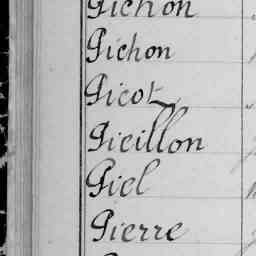 Pichon
Pichon
Picot
Pieillon
Piel
Pierre